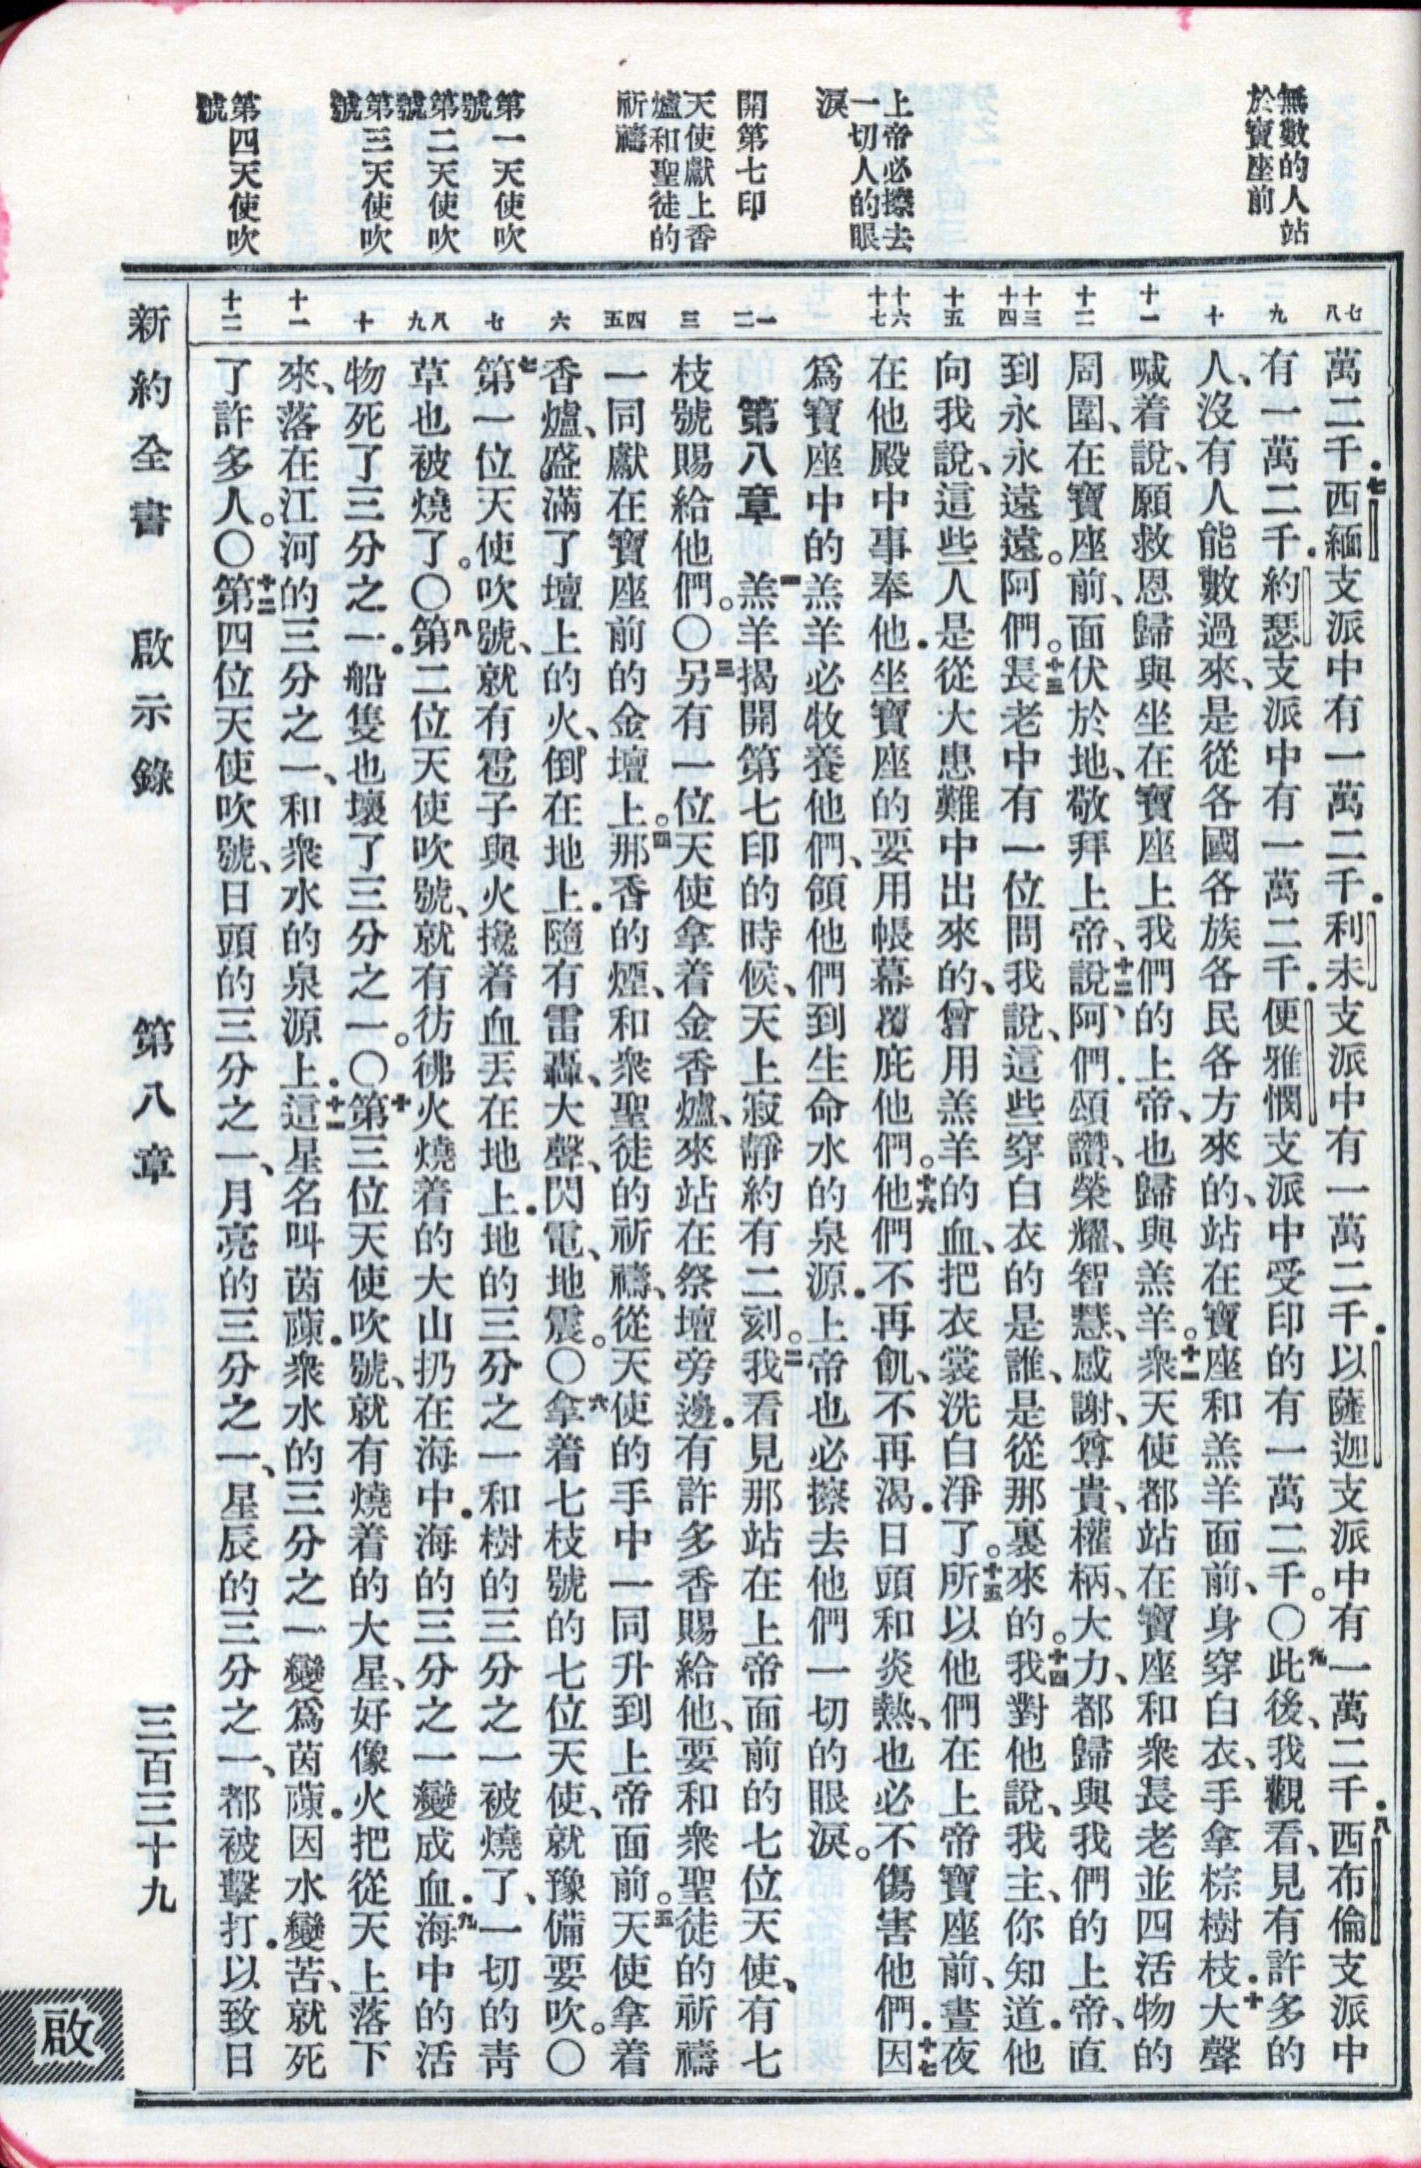 無數的人站
於寶座前
上帝必擦去
一切人的眼
淚
開第七印
天使獻上香
爐和聖徒的
祈禱
第一天使吹
號
第二天使吹
號
第三天使吹
號
第四天使吹
號
七
八
九
十
十一
十二
十三
十四
十五
十六
十七
一
二
三
四
五
六
七
八
九
十
十一
十二
萬二千．七西緬支派中有一萬二千．利未支派中有一萬二千．以薩迦支派中有一萬二千．八西布倫支派中
有一萬二千．約瑟支派中有一萬二千．便雅憫支派中受印的有一萬二千。〇九此後、我觀看、見有許多的
人、沒有人能數過來、是從各國各族各民各方來的、站在寶座和羔羊面前、身穿白衣、手拿棕樹枝．十大聲
喊着說、願救恩歸與坐在寶座上我們的上帝、也歸與羔羊。十一衆天使都站在寶座和衆長老並四活物的
周圍、在寶座前、面伏於地、敬拜上帝、十二說、阿們．頌讚、榮耀、智慧、感謝、尊貴、權柄、大力、都歸與我們的上帝、直
到永永遠遠。阿們。十三長老中有一位問我說、這些穿白衣的是誰、是從那裏來的。十四我對他說、我主、你知道．他
向我說、這些人是從大患難中出來的、曾用羔羊的血、把衣裳洗白淨了。十五所以他們在上帝寶座前、晝夜
在他殿中事奉他．坐寶座的要用帳幕覆庇他們。十六他們不再飢、不再渴．日頭和炎熱、也必不傷害他們．十七因
爲寶座中的羔羊必牧養他們、領他們到生命水的泉源．上帝也必擦去他們一切的眼淚。
第八章 一羔羊揭開第七印的時候、天上寂靜約有二刻。二我看見那站在上帝面前的七位天使、有七
枝號賜給他們。〇三另有一位天使拿着金香爐、來站在祭壇旁邊．有許多香賜給他、要和衆聖徒的祈禱
一同獻在寶座前的金壇上。四那香的煙、和衆聖徒的祈禱、從天使的手中一同升到上帝面前。五天使拿着
香爐、盛滿了壇上的火、倒在地上．隨有雷轟、大聲、閃電、地震。〇六拿着七枝號的七位天使、就豫備要吹。〇
七第一位天使吹號、就有雹子與火攙着血丟在地上．地的三分之一和樹的三分之一被燒了、一切的靑
草也被燒了。〇八第二位天使吹號、就有彷彿火燒着的大山扔在海中．海的三分之一變成血．九海中的活
物死了三分之一．船隻也壞了三分之一。〇十第三位天使吹號、就有燒着的大星、好像火把從天上落下
來、落在江河的三分之一、和衆水的泉源上．十一這星名叫茵蔯．衆水的三分之一變爲茵蔯．因水變苦、就死
了許多人。〇十二第四位天使吹號、日頭的三分之一、月亮的三分之一、星辰的三分之一、都被擊打．以致日
新約全書 啟示錄 第八章 三百三十九
啟